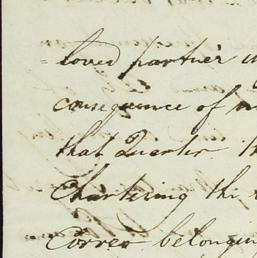 =loved partner in
consequence of
that Quarter.
Chartering the
Correo belonging